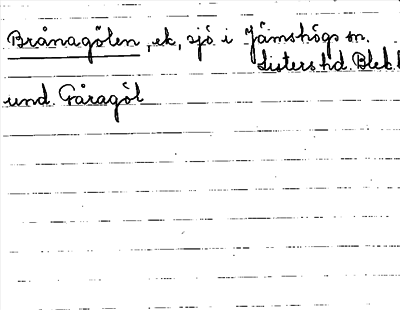 Brånagölen, ek, sjö i Jämshögs sn.
Listers hd. Blek l
und. Gåragöl